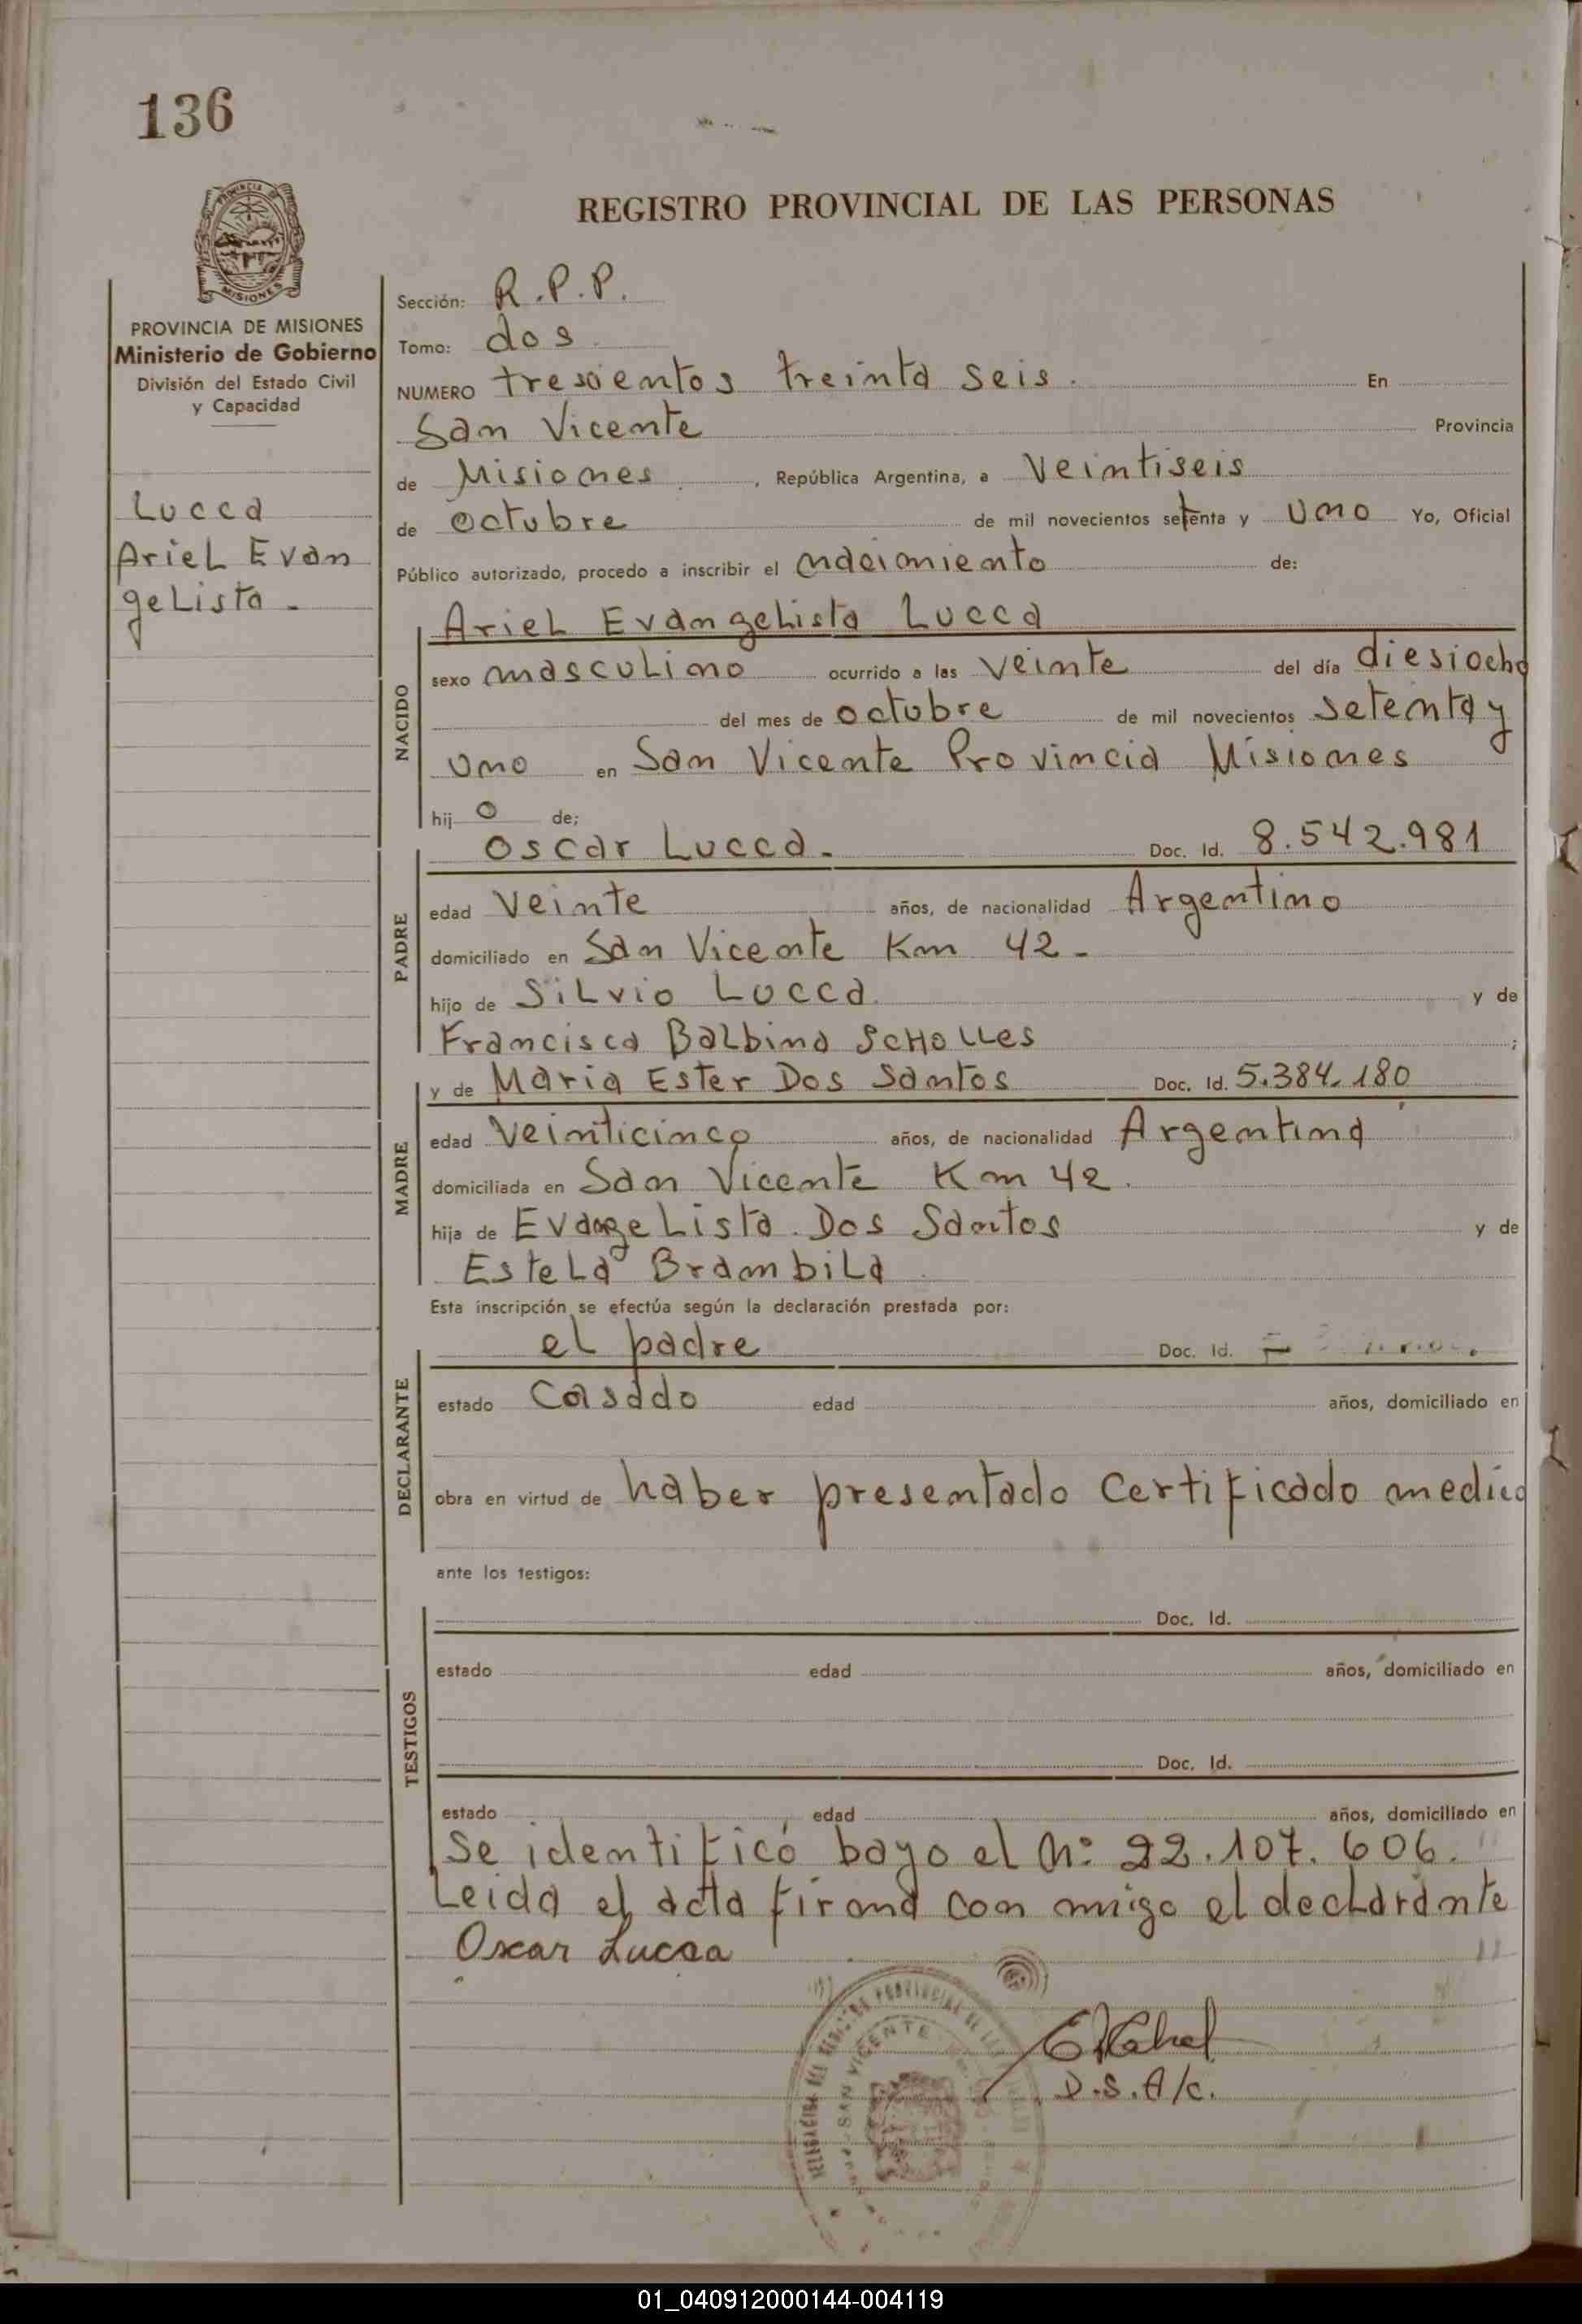 136
REGISTRO PROVINCIAL DE LAS PERSONAS
MISIONES
PROVINCIA DE MISIONES
Ministerio de Gobierno
División del Estado Civil
y Capacidad
Lucca
Ariel Evan
gelista -
Sección: R.P.P.
Tomo: dos
NUMERO tresientos treinta seis. En
San Vicente Provincia
de Misiones, República Argentina, a Veintiseis
de Octubre de mil novecientos setenta y uno Yo, Oficial
Público autorizado, procedo a inscribir el nacimiento de:
Ariel Evangelista Lucca
NACIDO
sexo masculino ocurrido a las veinte del día diesiocho
del mes de octubre de mil novecientos setenta y
uno en San Vicente Provincia Misiones
hijo de:
PADRE
Oscar Lucca - Doc. Id. 8.542.981
edad Veinte años, de nacionalidad Argentino
domiciliado en San Vicente Km 42 -
hijo de Silvio Lucca y de
Francisca Balbina Scholles ;
MADRE
y de Maria Ester Dos Santos Doc. Id. 5.384.180
edad Veinticinco años, de nacionalidad Argentina
domiciliada en San Vicente Km 42.
hija de Evangelista Dos Santos y de
Estela Brambila
Esta inscripción se efectúa según la declaración prestada por:
DECLARANTE
el padre Doc. Id.
estado Casado edad años, domiciliado en
obra en virtud de haber presentado Certificado medico
ante los testigos:
TESTIGOS
Doc. Id.
estado edad años, domiciliado en
Doc. Id.
estado edad años, domiciliado en
Se identificó bayo el n: 22.107.606.
Leida el acta firma con migo el declarante
Oscar Lucca
SAN VICENTE
D.S.A/c.
01_040912000144-004119